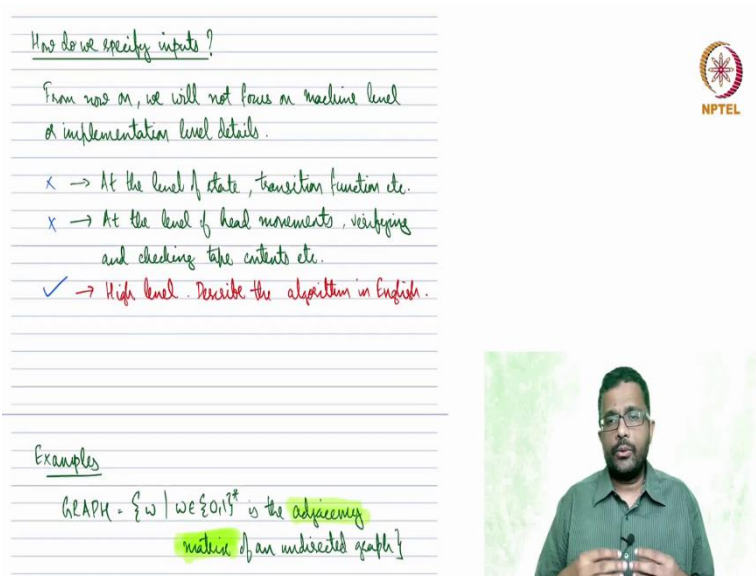 How do we specify inputs?
NPTEL
From now on, we will not focus on machine level
or implementation level details.
x → At the level of state, transition function etc.
x → At the level of head movements, verifying
and checking tape contents etc.
✓ → High level. Describe the algorithm in English.
Examples
GRAPH = {w | w ∈ {0,1}* is the adjacency
matrix of an undirected graph}